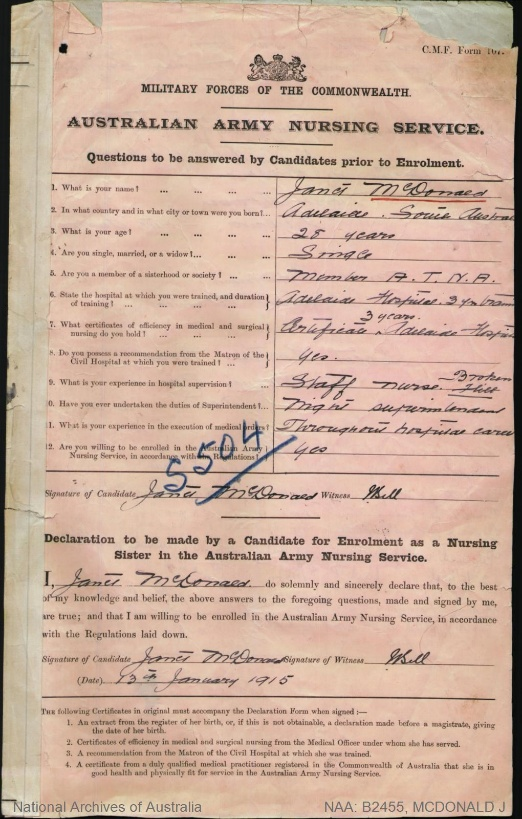 C.M.F. Form
MILITARY FORCES OF THE COMMONWEALTH.
AUSTRALIAN ARMY NURSING SERVICE.
Questions to be answered by Candidates prior to Enrolment.
1. What is your name? ... ... ... Janet McDonald
2. In what country and in what city or town were you born? ... Adelaide. South Austral
3. What is your age? ... ... ... 28 years
4. Are you single, married, or a widow? ... ... Single
5. Are you a member of a sisterhood or society? ... ... Member A.T.N.A.
6. State the hospital at which you were trained, and duration of training? ... ... ... Adelaide Hospital. 3 yrs
7. What certificates of efficiency in medical and surgical nursing do you hold? ... ... ... 3 years. Certificate. Adelaide Hospi
8. Do you possess a recommendation from the Matron of the Civil Hospital at which you were trained? ... yes.
9. What is your experience in hospital supervision? ... Staff nurse. Broken Hill
0. Have you ever undertaken the duties of Superintendent? ... Night superintendent
11. What is your experience in the execution of medical orders? Throughout hospital career
12. Are you willing to be enrolled in the Australian Army Nursing Service, in accordance with the Regulations? yes
5504
Signature of Candidate Janet McDonald Witness WBell
Declaration to be made by a Candidate for Enrolment as a Nursing
Sister in the Australian Army Nursing Service.
I, Janet McDonald do solemnly and sincerely declare that, to the best
of my knowledge and belief, the above answers to the foregoing questions, made and signed by me,
are true; and that I am willing to be enrolled in the Australian Army Nursing Service, in accordance
with the Regulations laid down.
Signature of Candidate Janet McDonald Signature of Witness WBell
(Date) 13th January 1915
THE following Certificates in original must accompany the Declaration Form when signed :—
1. An extract from the register of her birth, or, if this is not obtainable, a declaration made before a magistrate, giving
the date of her birth.
2. Certificates of efficiency in medical and surgical nursing from the Medical Officer under whom she has served.
3. A recommendation from the Matron of the Civil Hospital at which she was trained.
4. A certificate from a duly qualified medical practitioner registered in the Commonwealth of Australia that she is in
good health and physically fit for service in the Australian Army Nursing Service.
National Archives of Australia NAA: B2455, MCDONALD J